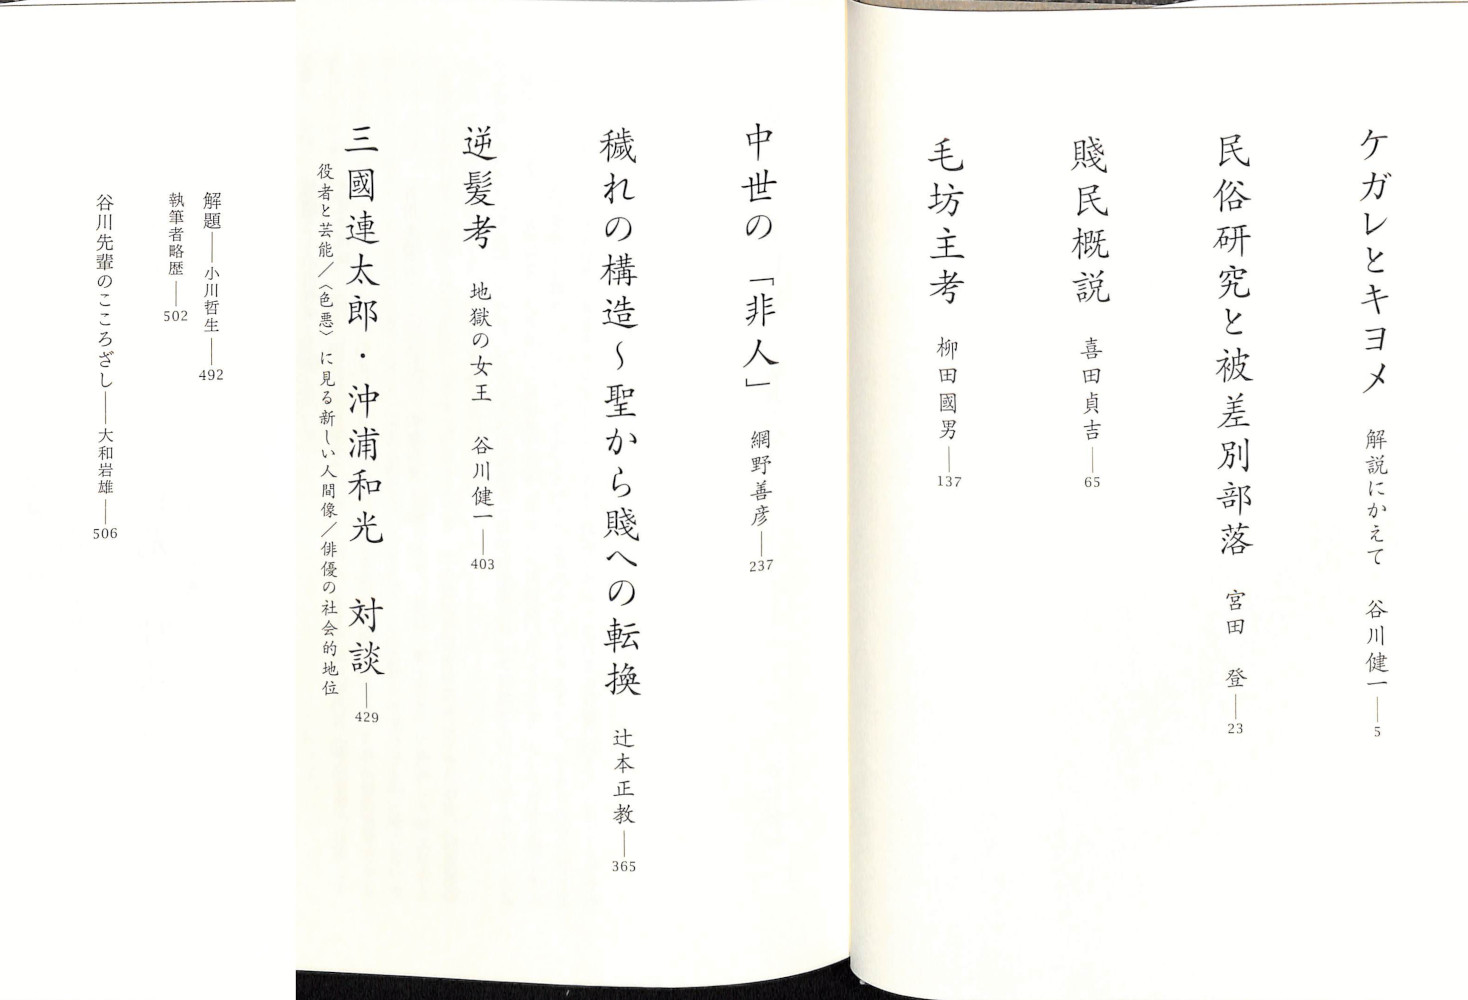 ケガレとキヨメ 解説にかえて 谷川健一──5
民俗研究と被差別部落 宮田 登──23
賤民概説 喜田貞吉──65
毛坊主考 柳田國男──137
中世の「非人」 網野善彦──237
穢れの構造〜聖から賤への転換 辻本正教──365
逆髪考 地獄の女王 谷川健一──403
三國連太郎・沖浦和光 対談──429
役者と芸能／〈色悪〉に見る新しい人間像／俳優の社会的地位
解題──小川哲生──492
執筆者略歴──502
谷川先輩のこころざし──大和岩雄──506